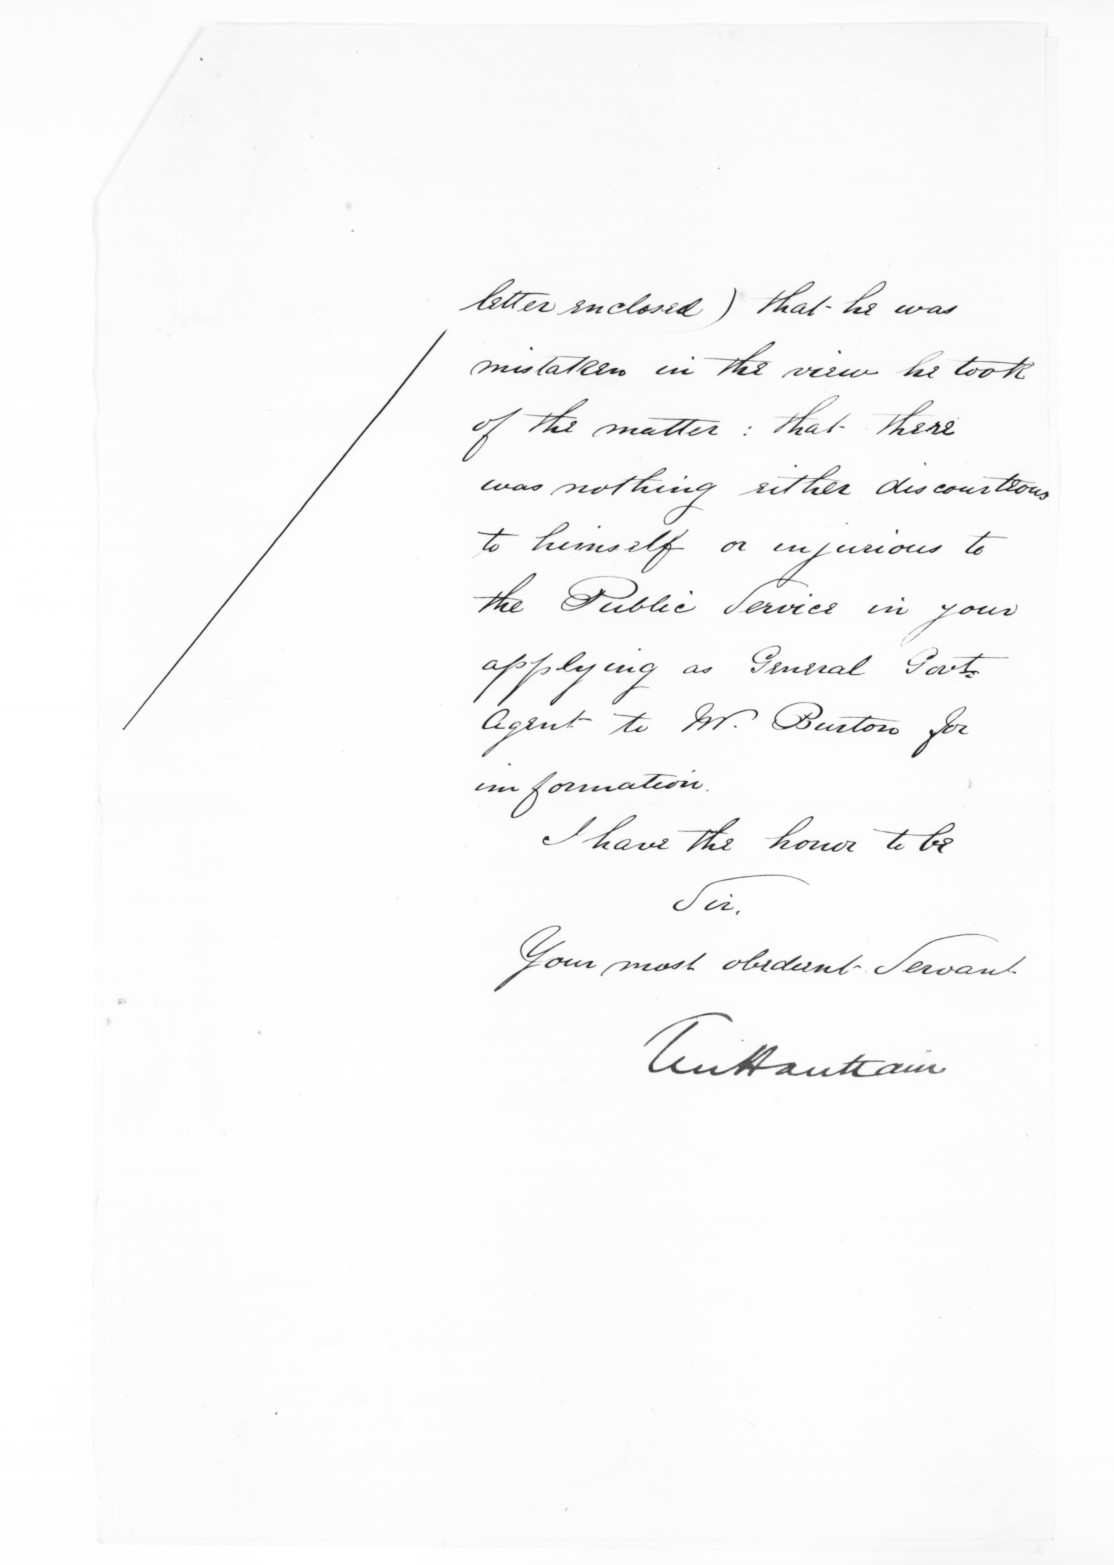 letter enclosed) that he was
mistaken in the view he took
of the matter : that there
was nothing either discourteous
to himself or injurious to
the Public Service in your
applying as General Govt.
Agent to Mr. Burton for
information.
I have the honor to be
Sir,
Your most obedient Servant